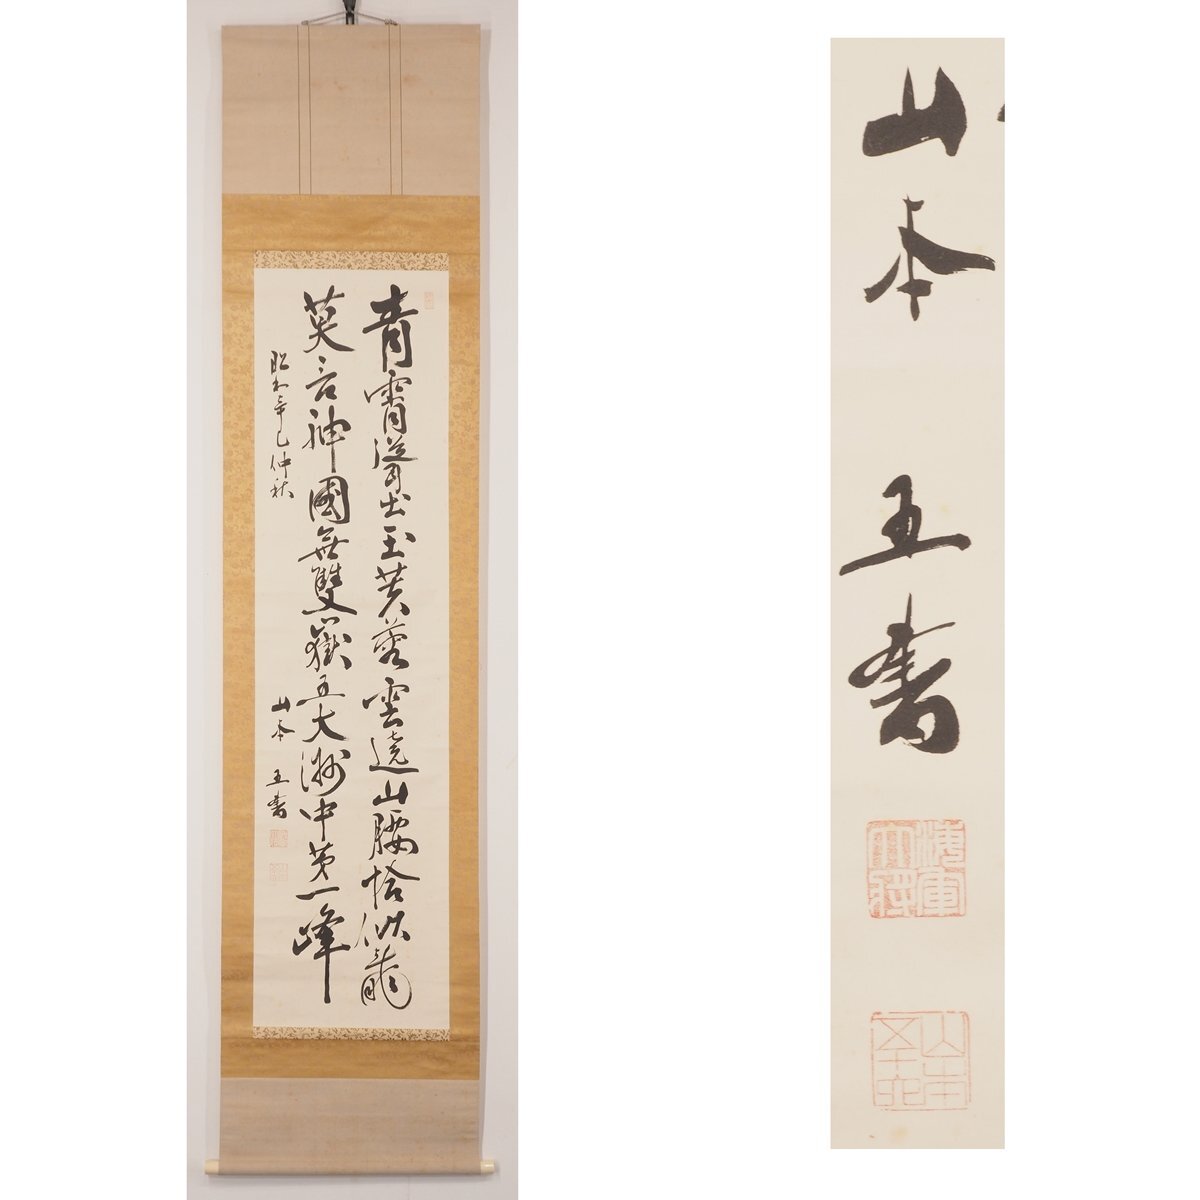 青霄聳出玉芙蓉雲遶山腰恰似龍
莫言神國無雙嶽五大洲中第一峰
昭和辛巳仲秋
山本 五書
山本 五書
海軍大将
山本五十六